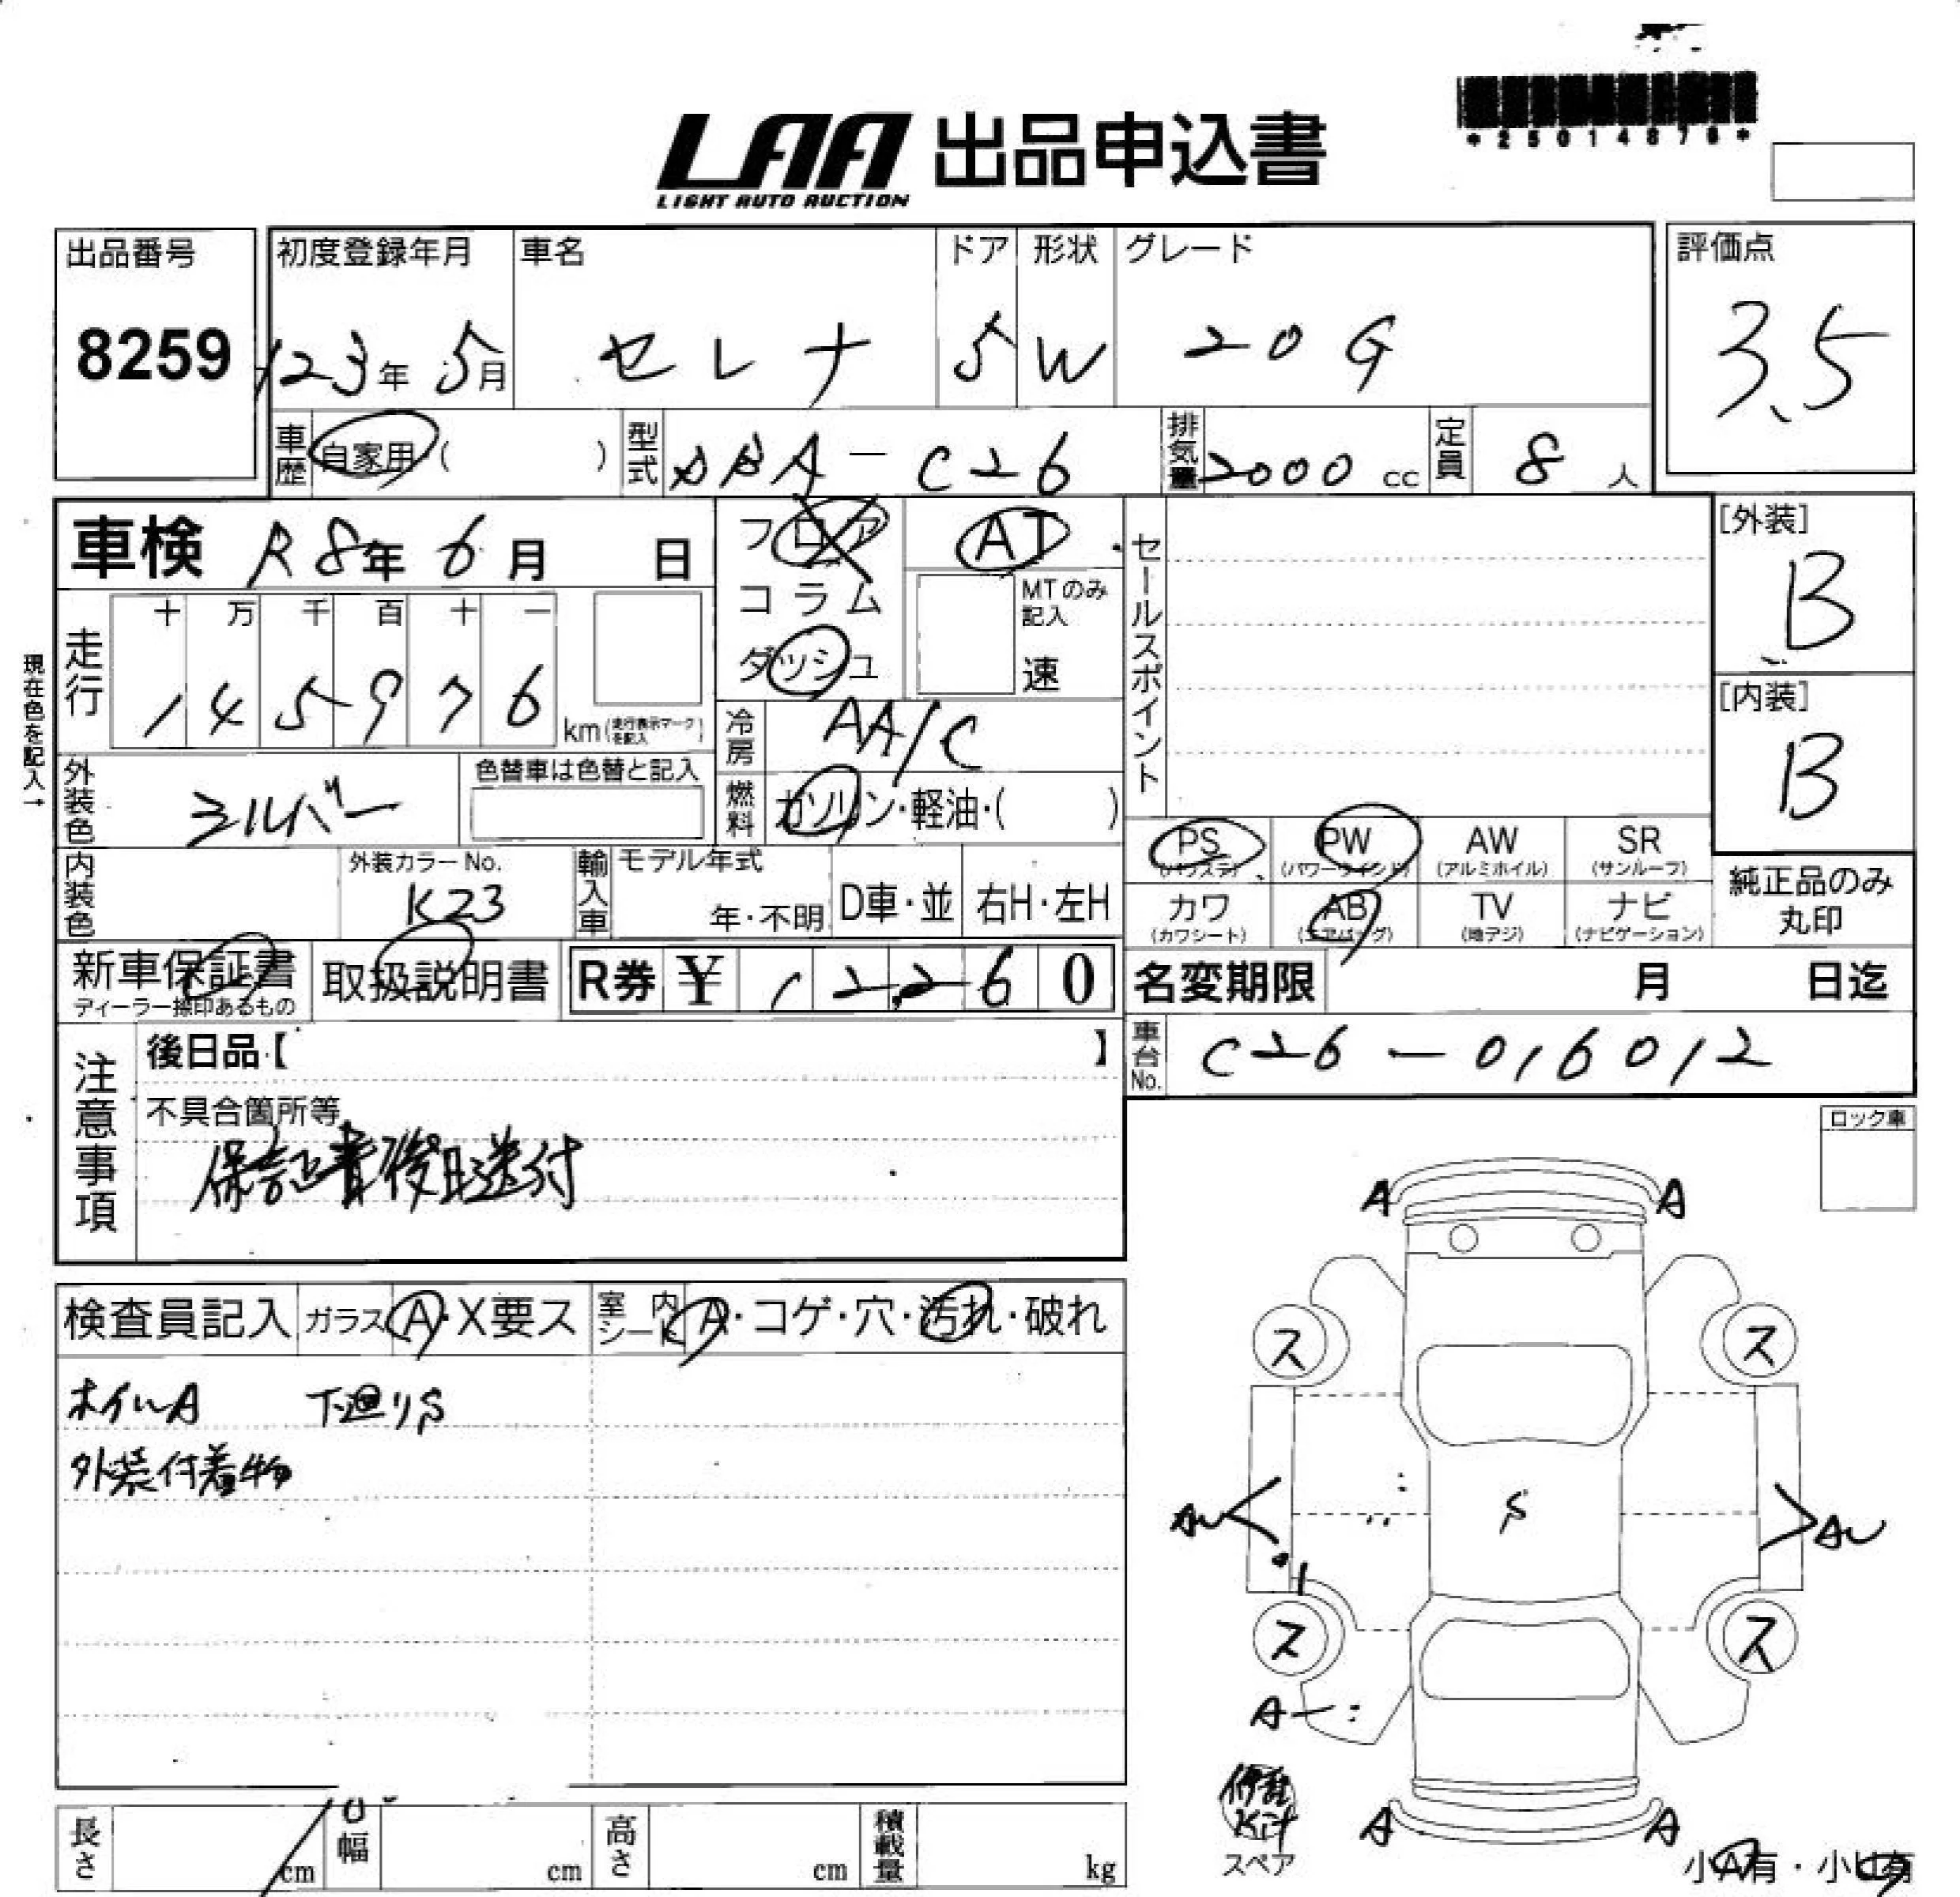 *25014878*
LAA 出品申込書
LIGHT AUTO AUCTION
出品番号 初度登録年月 車名 ドア 形状 グレード 評価点
8259 H23年 5月 セレナ 5 W 20G 3.5
車歴 自家用( ) 型式 DBA-C26 排気量 2000 cc 定員 8 人
車検 R8年 6月 日 フロア AT セールスポイント [外装]
B
コラム MTのみ記入
走行 十 万 千 百 十 一
ダッシュ 速 [内装]
1 4 5 9 7 6 km(走行表示マークを記入)
冷房 AA/C B
現在色を記入→
外装色 シルバー 色替車は色替と記入 燃料 ガソリン・軽油・( )
PS PW AW SR
(パワステ) (パワーウインド) (アルミホイル) (サンルーフ)
内装色 外装カラーNo. 輸入車 モデル年式 純正品のみ
K23 年・不明 D車・並 右H・左H カワ AB TV ナビ 丸印
(カワシート) (エアバッグ) (地デジ) (ナビゲーション)
新車保証書 取扱説明書 R券 ¥ 12,260 名変期限 月 日迄
ディーラー捺印あるもの
注意事項 後日品【 】 車台No. C26-016012
不具合箇所等
保証書後日送付
ロック車
A A
検査員記入 ガラス A・X要ス 室内シート A・コゲ・穴・汚れ・破れ
ス ス
ホイルA 下廻りS
外装付着物
AU S AU
ス ス
A
修理Kit
スペア
A A
長さ cm 幅 cm 高さ cm 積載量 kg
小A有・小U有